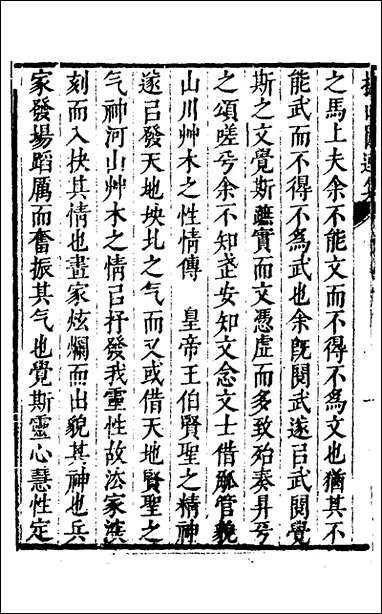 之馬上夫余不能文而不得不為文也猶其不
能武而不得不為武也余既閱武遂㠯武閱覺
斯之文覺斯醮實而文憑虛而多致殆奏昇兮
之頌嗟兮余不知武安知文念文士借觚管貌
山川艸木之性情傳　皇帝王伯賢聖之精神
遂㠯發天地坱圠之气而又或借天地賢聖之
气神河山艸木之情㠯抒發我靈性故法家
刻而入快其情也畫家炫爛而出貌其神也兵
家發揚蹈厲而奮振其气也覺斯靈心慧性定